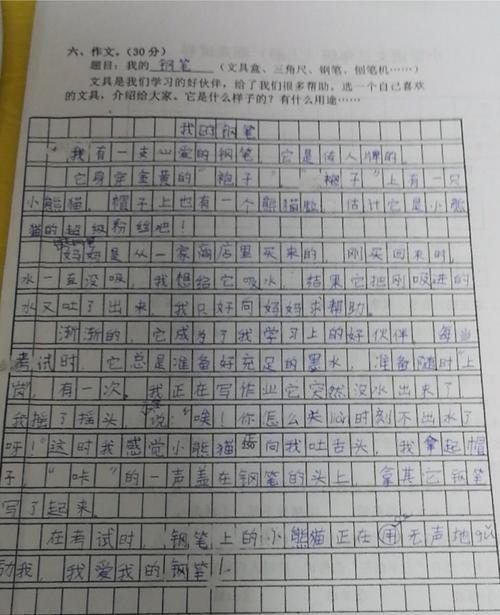 六、作文。(30分)
题目：我的 钢笔 (文具盒、三角尺、钢笔、刨笔机……)
文具是我们学习的好伙伴，给了我们很多帮助。选一个自己喜欢
的文具，介绍给大家。它是什么样子的？有什么用途……
我的钢笔
我有一支心爱的钢笔，它是 人牌的。
它身穿金黄的"袍子 "帽子"上有一只
小熊猫，帽子上也有一个熊猫 ，估计它是小熊
猫的超级粉丝吧！
妈妈是从一家商店里买来的，刚买回来时，
水一直没吸，我想给它吸水，结果它把刚吸进的
水又吐了出来，我只好向妈妈求帮助。
渐渐的，它成为了我学习上的好伙伴。每当
考试时，它总是准备好充足的墨水，准备随时"上
岗，有一次。我正在写作业它突然没水出来了
我摇了摇头 说："唉！你怎么关 时刻不出水了
呀！"这时我感觉小熊猫 向我吐舌头，我拿起帽
子，"咔"的一声盖在钢笔的头上，拿其它钢笔
写了起来。
在考试时，钢笔上的小熊猫正在用无声地
动我，我爱我的钢笔！